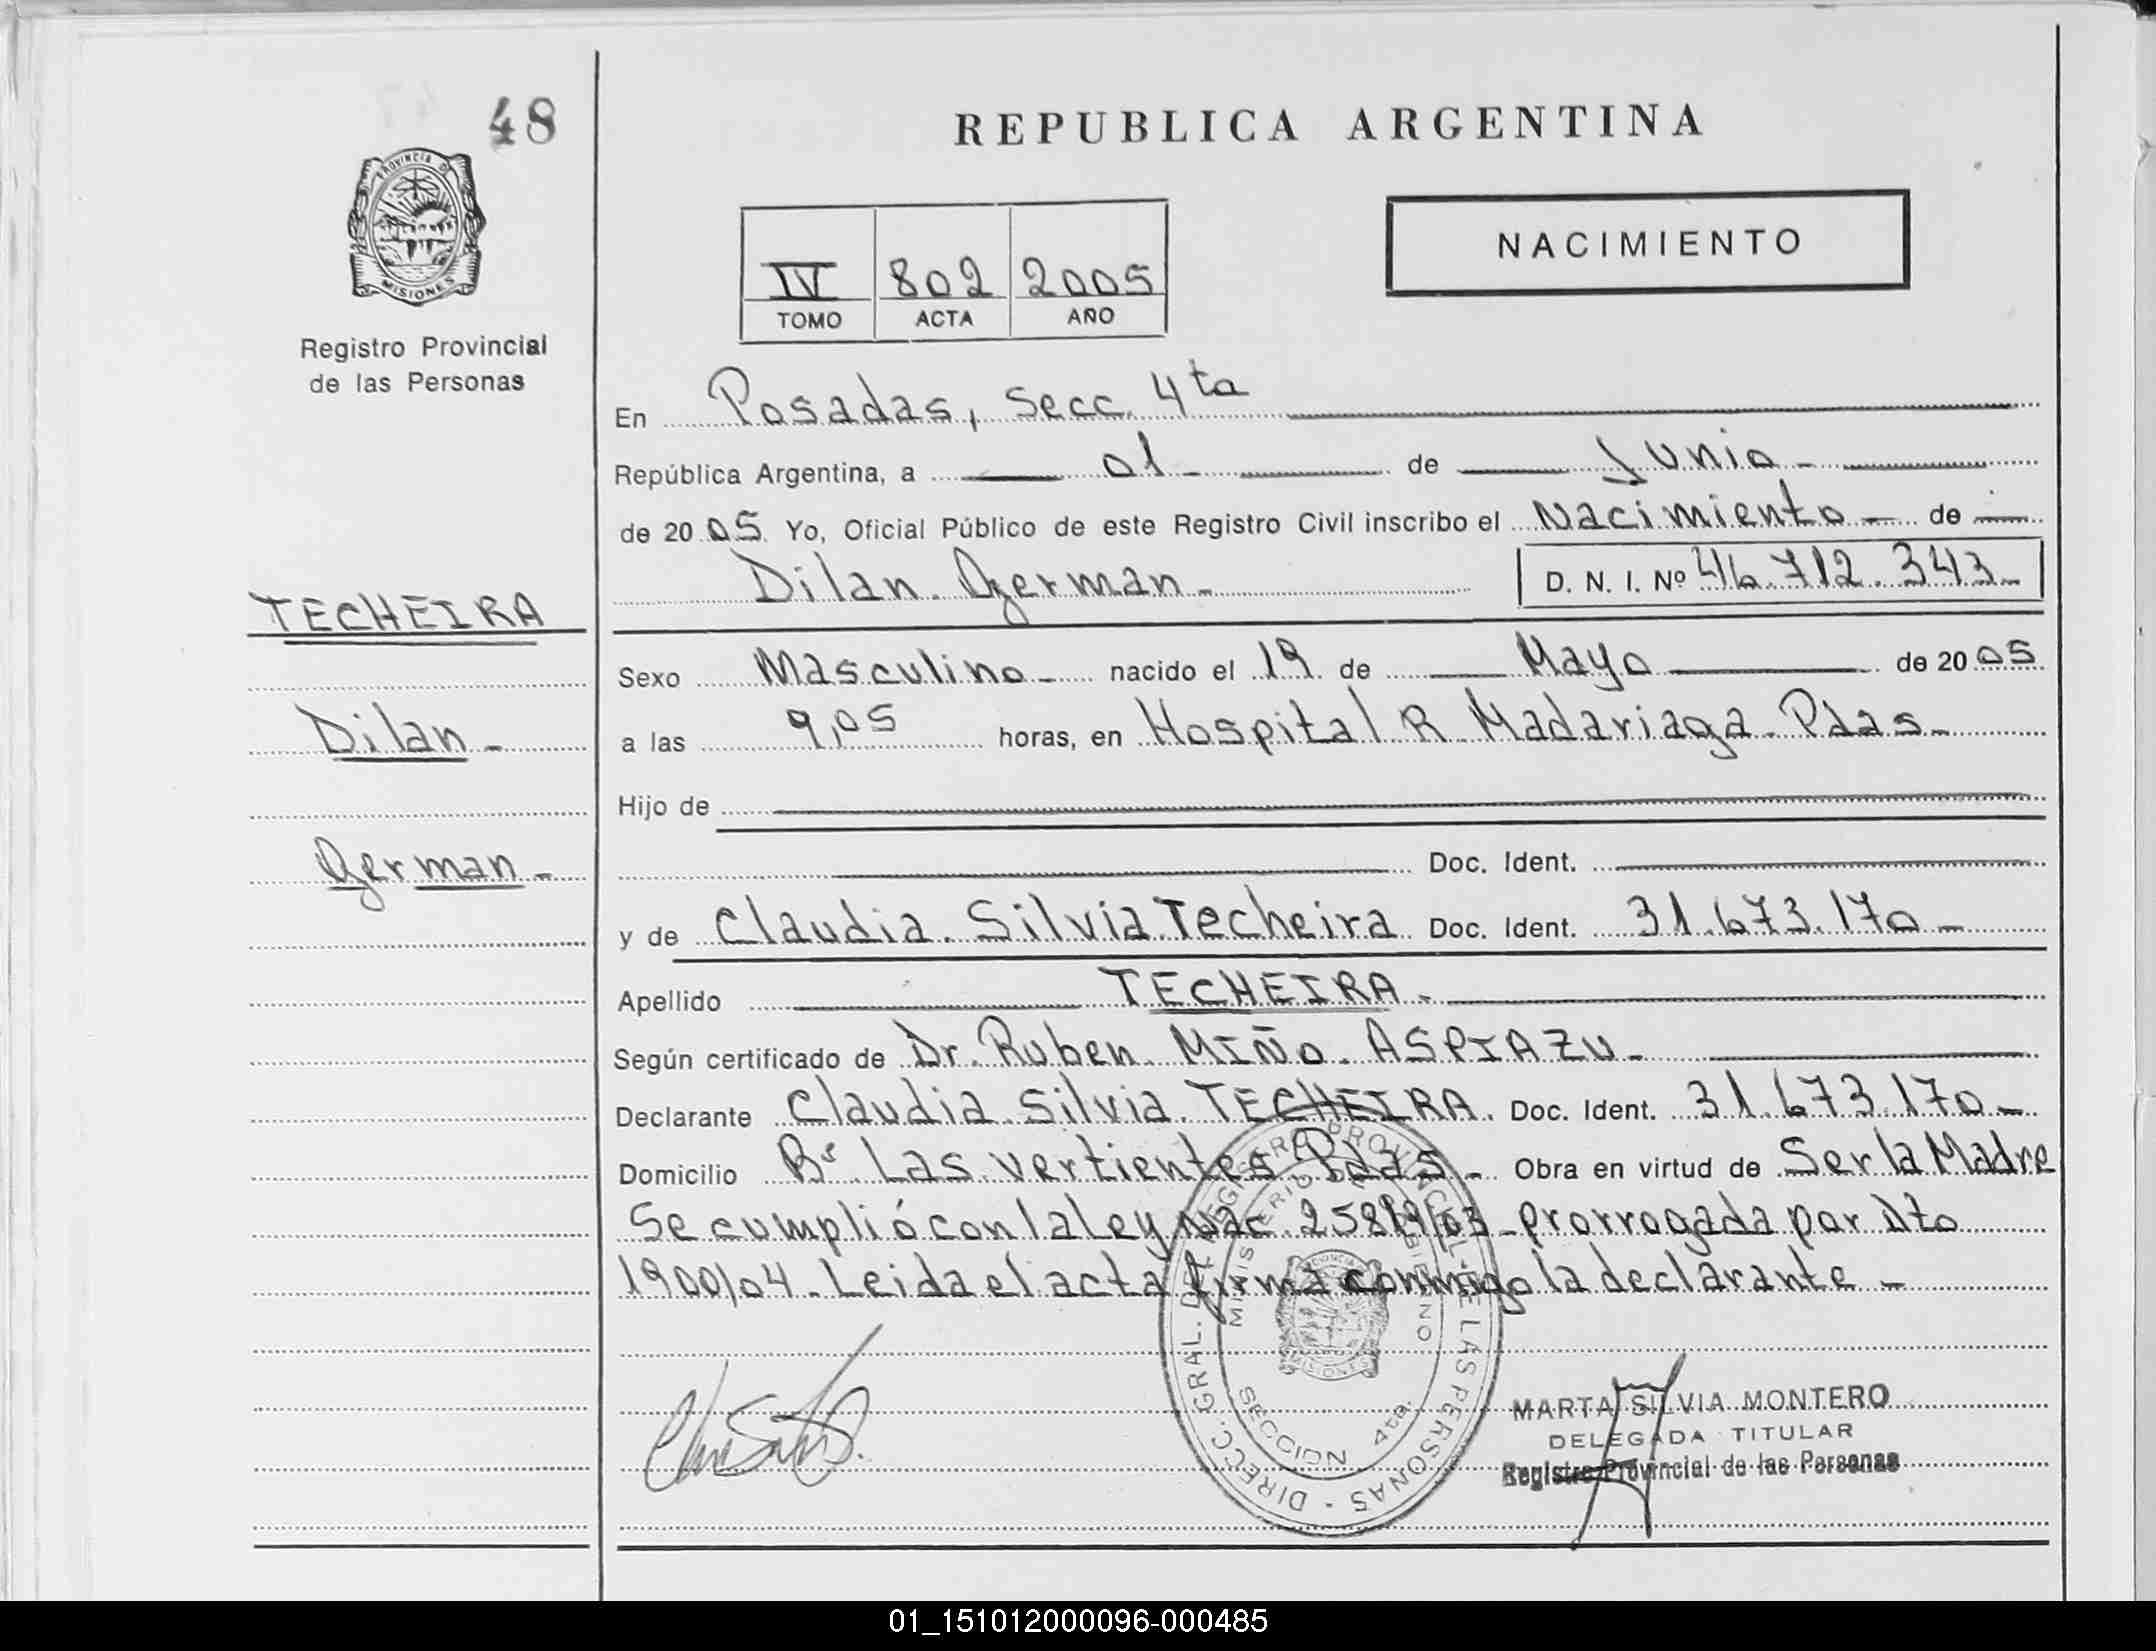 48
REPUBLICA ARGENTINA
PROVINCIA DE
MISIONES
Registro Provincial
de las Personas
IV 802 2005
TOMO ACTA AÑO
NACIMIENTO
En Posadas, Secc. 4ta
República Argentina, a 01 de Junio
de 2005 Yo, Oficial Público de este Registro Civil inscribo el Nacimiento de
Dilan German D. N. I. Nº 46.712.343
TECHEIRA
Dilan
German
Sexo Masculino nacido el 19 de Mayo de 2005
a las 9,05 horas, en Hospital R Madariaga Pdas
Hijo de
Doc. Ident.
y de Claudia Silvia Techeira Doc. Ident. 31.673.170
Apellido TECHEIRA
Según certificado de Dr. Ruben MIÑO ASPIAZU
Declarante Claudia Silvia TECHEIRA. Doc. Ident. 31.673.170
Domicilio Bº Las vertientes Pdas Obra en virtud de Ser la Madre
Se cumplió con la ley Nac. 25819/03 prorrogada por Dto
1900/04. Leida el acta firma conmigo la declarante
DIRECC. GRAL. DEL REGISTRO PROVINCIAL DE LAS PERSONAS
MINISTERIO DE GOBIERNO
SECCION 4ta.
MARTA SILVIA MONTERO
DELEGADA TITULAR
Registro Provincial de las Personas
01_151012000096-000485